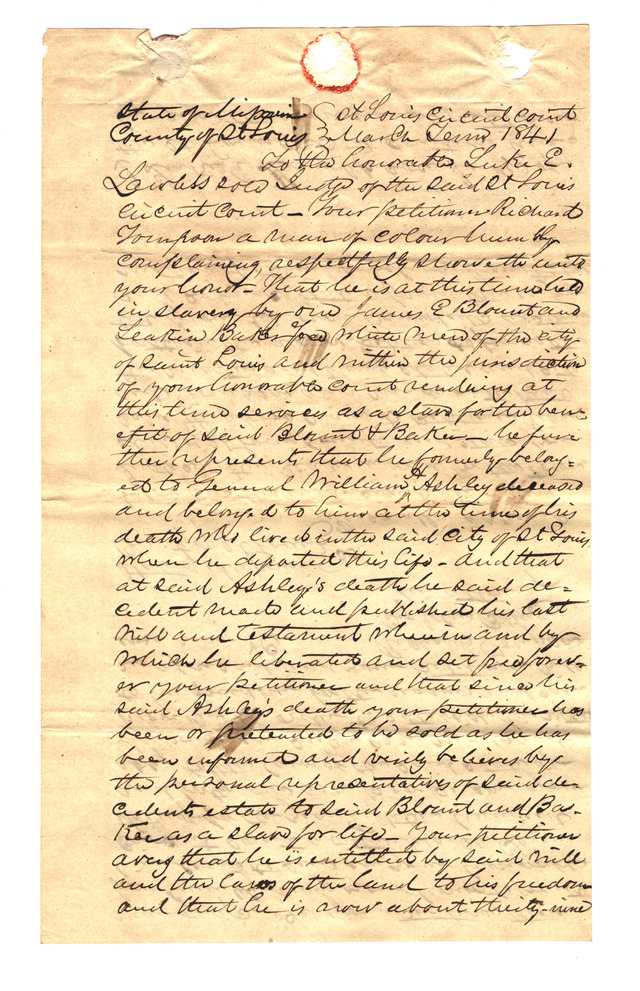 State of Missouri } St Louis Circuit Court
County of St Louis } March Term 1841
To the honorable Luke E.
Lawless sole Judge of the said St Louis
circuit court – Your petitioner Richard
Tompson a man of colour humbly
complaining, respectfully showeth unto
your honor – That he is at this time held
in slavery by one James E Blount and
Leakin Baker free white men of the city
of Saint Louis and within the jurisdiction
of your honorable court rendering at
this time services as a slave for the ben-
efit of said Blount & Baker – he fur-
ther represents that he formerly belong-
ed to General William H Ashley deceased
and belonged to him at the time of his
death who lived in the said city of St Louis
when he departed this life – and that
at said Ashley's death he said de-
cedent made and published his last
will and testament wherein and by
which he liberated and set free forev-
er your petitioner and that since his
said Ashley's death your petitioner has
been or pretended to be sold as he has
been informed and verily believes by
the personal representatives of said de-
cedents estate to said Blount and Ba-
ker as a slave for life – Your petitioner
avers that he is entitled by said will
and the laws of the land to his freedom
and that he is now about thirty-nine